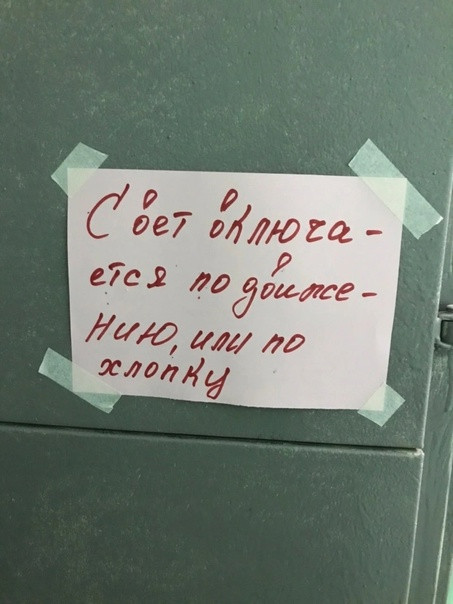 Свет включа-
ется по движе-
нию, или по
хлопку